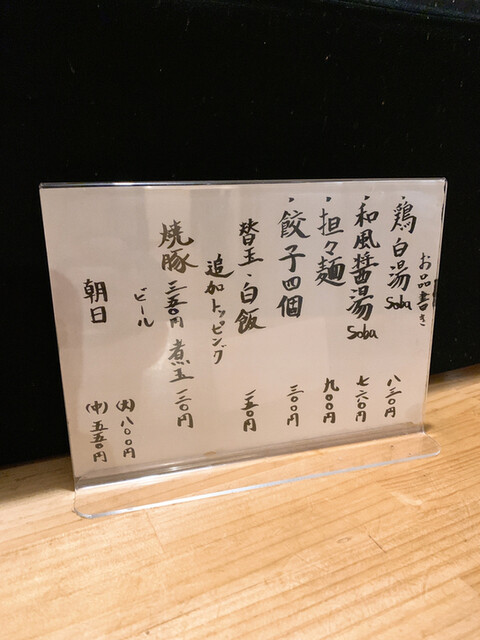 お品書き
・鶏白湯Soba 八三〇円
・和風醤湯Soba 七六〇円
・担々麺 九〇〇円
・餃子四個 三〇〇円
替玉・白飯 一五〇円
追加トッピング
焼豚 三五〇円 煮玉 一三〇円
ビール
(大) 八〇〇円
朝日 (中) 五五〇円